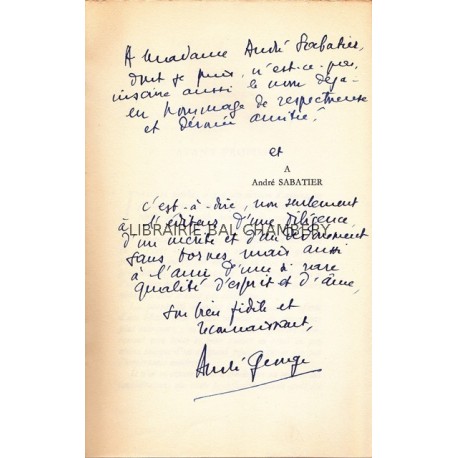 A Madame André Sabatier,
dont je puis, n'est-ce pas,
inscrire aussi le nom déjà
en hommage de respectueuse
et dévouée amitié.
et
A
André SABATIER
c'est-à-dire, non seulement
à l'éditeur d'une diligence
LIBRAIRIE BAL CHAMBERY
d'un mérite et d'un dévouement
sans bornes mais aussi
à l'ami d'une si rare
qualité d'esprit et d'âme,
son bien fidèle et
reconnaissant,
André George